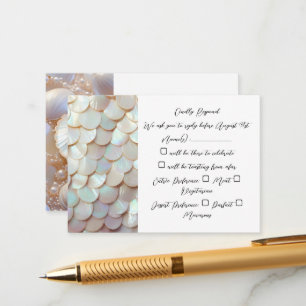 Kindly Respond
We ask you to reply before August 1st
Name(s)
will be there to celebrate
will be toasting from afar
Entrée Preference: Meat
Vegetarian
Desert Preference: Parfait
Macarons